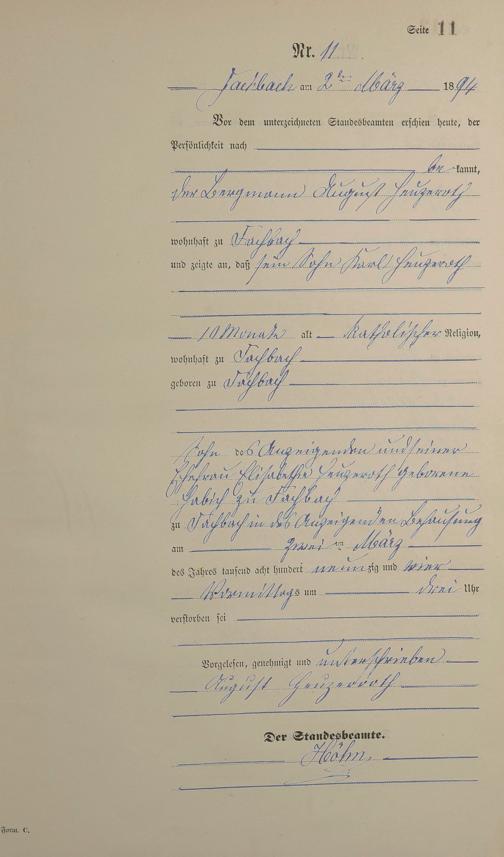 Seite 11
Nr. 11
Fachbach am 2ten März 1894
Vor dem unterzeichneten Standesbeamten erschien heute, der
Persönlichkeit nach
be kannt,
der Bergmann August Heuzeroth
wohnhaft zu Fachbach
und zeigte an, daß sein Sohn Karl Heuzeroth
10 Monate alt katholischer Religion,
wohnhaft zu Fachbach
geboren zu Fachbach
Sohn des Anzeigenden und seiner
Ehefrau Elisabetha Heuzeroth geborene
Habich zu Fachbach
zu Fachbach in des Anzeigenden Behausung
am zwei ten März
des Jahres tausend acht hundert neunzig und vier
Vormittags um drei Uhr
verstorben sei
Vorgelesen, genehmigt und unterschrieben
August Heuzeroth
Der Standesbeamte.
Höhn.
Form. C.